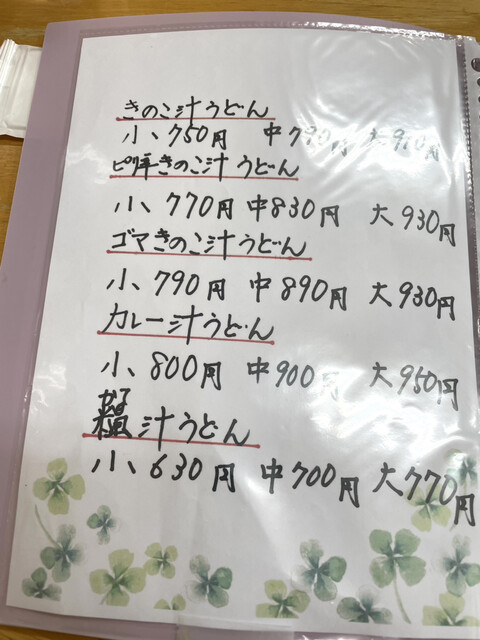 きのこ汁うどん
小、750円 中790円 大910円
ピリ辛きのこ汁うどん
小、770円 中830円 大930円
ゴマきのこ汁うどん
小、790円 中890円 大930円
カレー汁うどん
小、800円 中900円 大950円
かて
糧汁うどん
小、630円 中700円 大770円